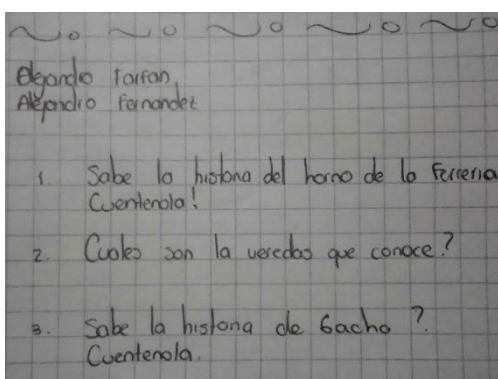 Alejandro Farfan,
Alejandro Fernandez
1. Sabe la historia del horno de la Ferreria
Cuentenola!
2. Cuales son la veredas que conoce?
3. Sabe la historia de Gacho?
Cuentenola.